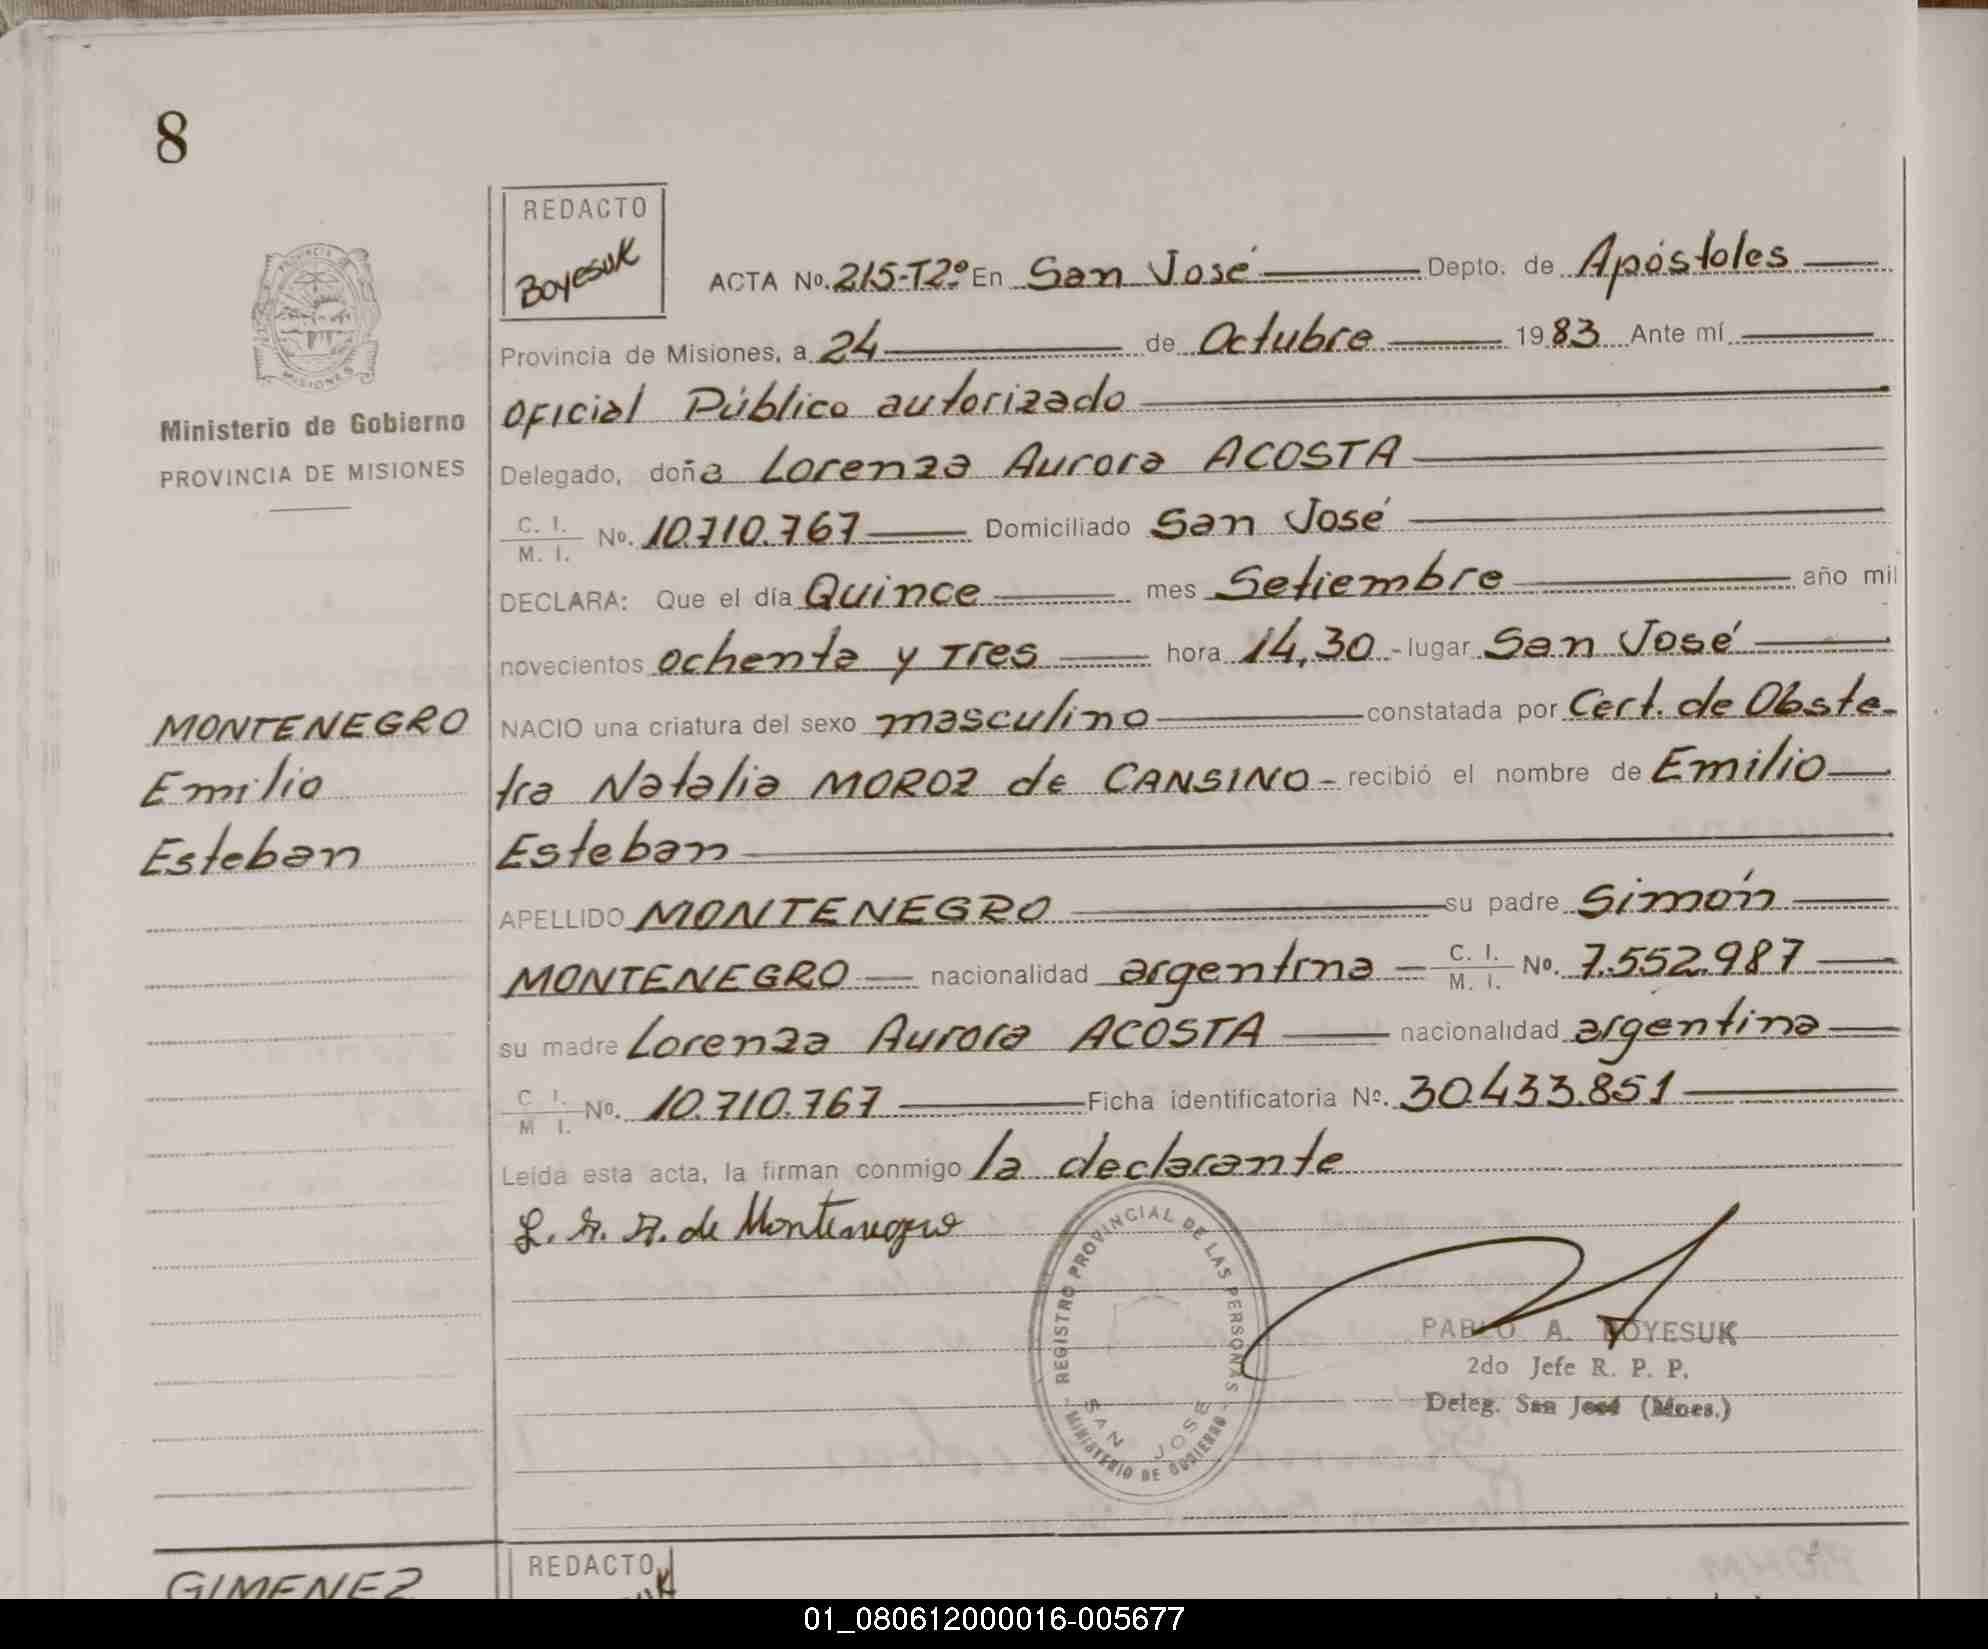 8
REDACTO
Boyesuk
ACTA No. 215-T2º En San José Depto. de Apóstoles
Provincia de Misiones, a 24 de Octubre 1983 Ante mí
Oficial Público autorizado
Delegado, doña Lorenza Aurora ACOSTA
C. I. / M. I. No. 10.710.767 Domiciliado San José
DECLARA: Que el día Quince mes Setiembre año mil
novecientos ochenta y Tres hora 14,30 - lugar San José
NACIO una criatura del sexo masculino constatada por Cert. de Obste-
tra Natalia MOROZ de CANSINO - recibió el nombre de Emilio
Esteban
APELLIDO MONTENEGRO su padre Simón
MONTENEGRO nacionalidad argentina C. I. / M. I. No. 7.552.987
su madre Lorenza Aurora ACOSTA nacionalidad argentina
C I. / M I. No. 10.710.767 Ficha identificatoria Nº. 30.433.851
Leída esta acta, la firman conmigo la declarante
L. A. A. de Montenegro
PROVINCIA DE MISIONES
Ministerio de Gobierno
PROVINCIA DE MISIONES
MONTENEGRO
Emilio
Esteban
REGISTRO PROVINCIAL DE LAS PERSONAS
SAN JOSE
MINISTERIO DE GOBIERNO
PABLO A. BOYESUK
2do Jefe R. P. P.
Deleg. San José (Mnes.)
GIMENEZ
REDACTO
01_080612000016-005677